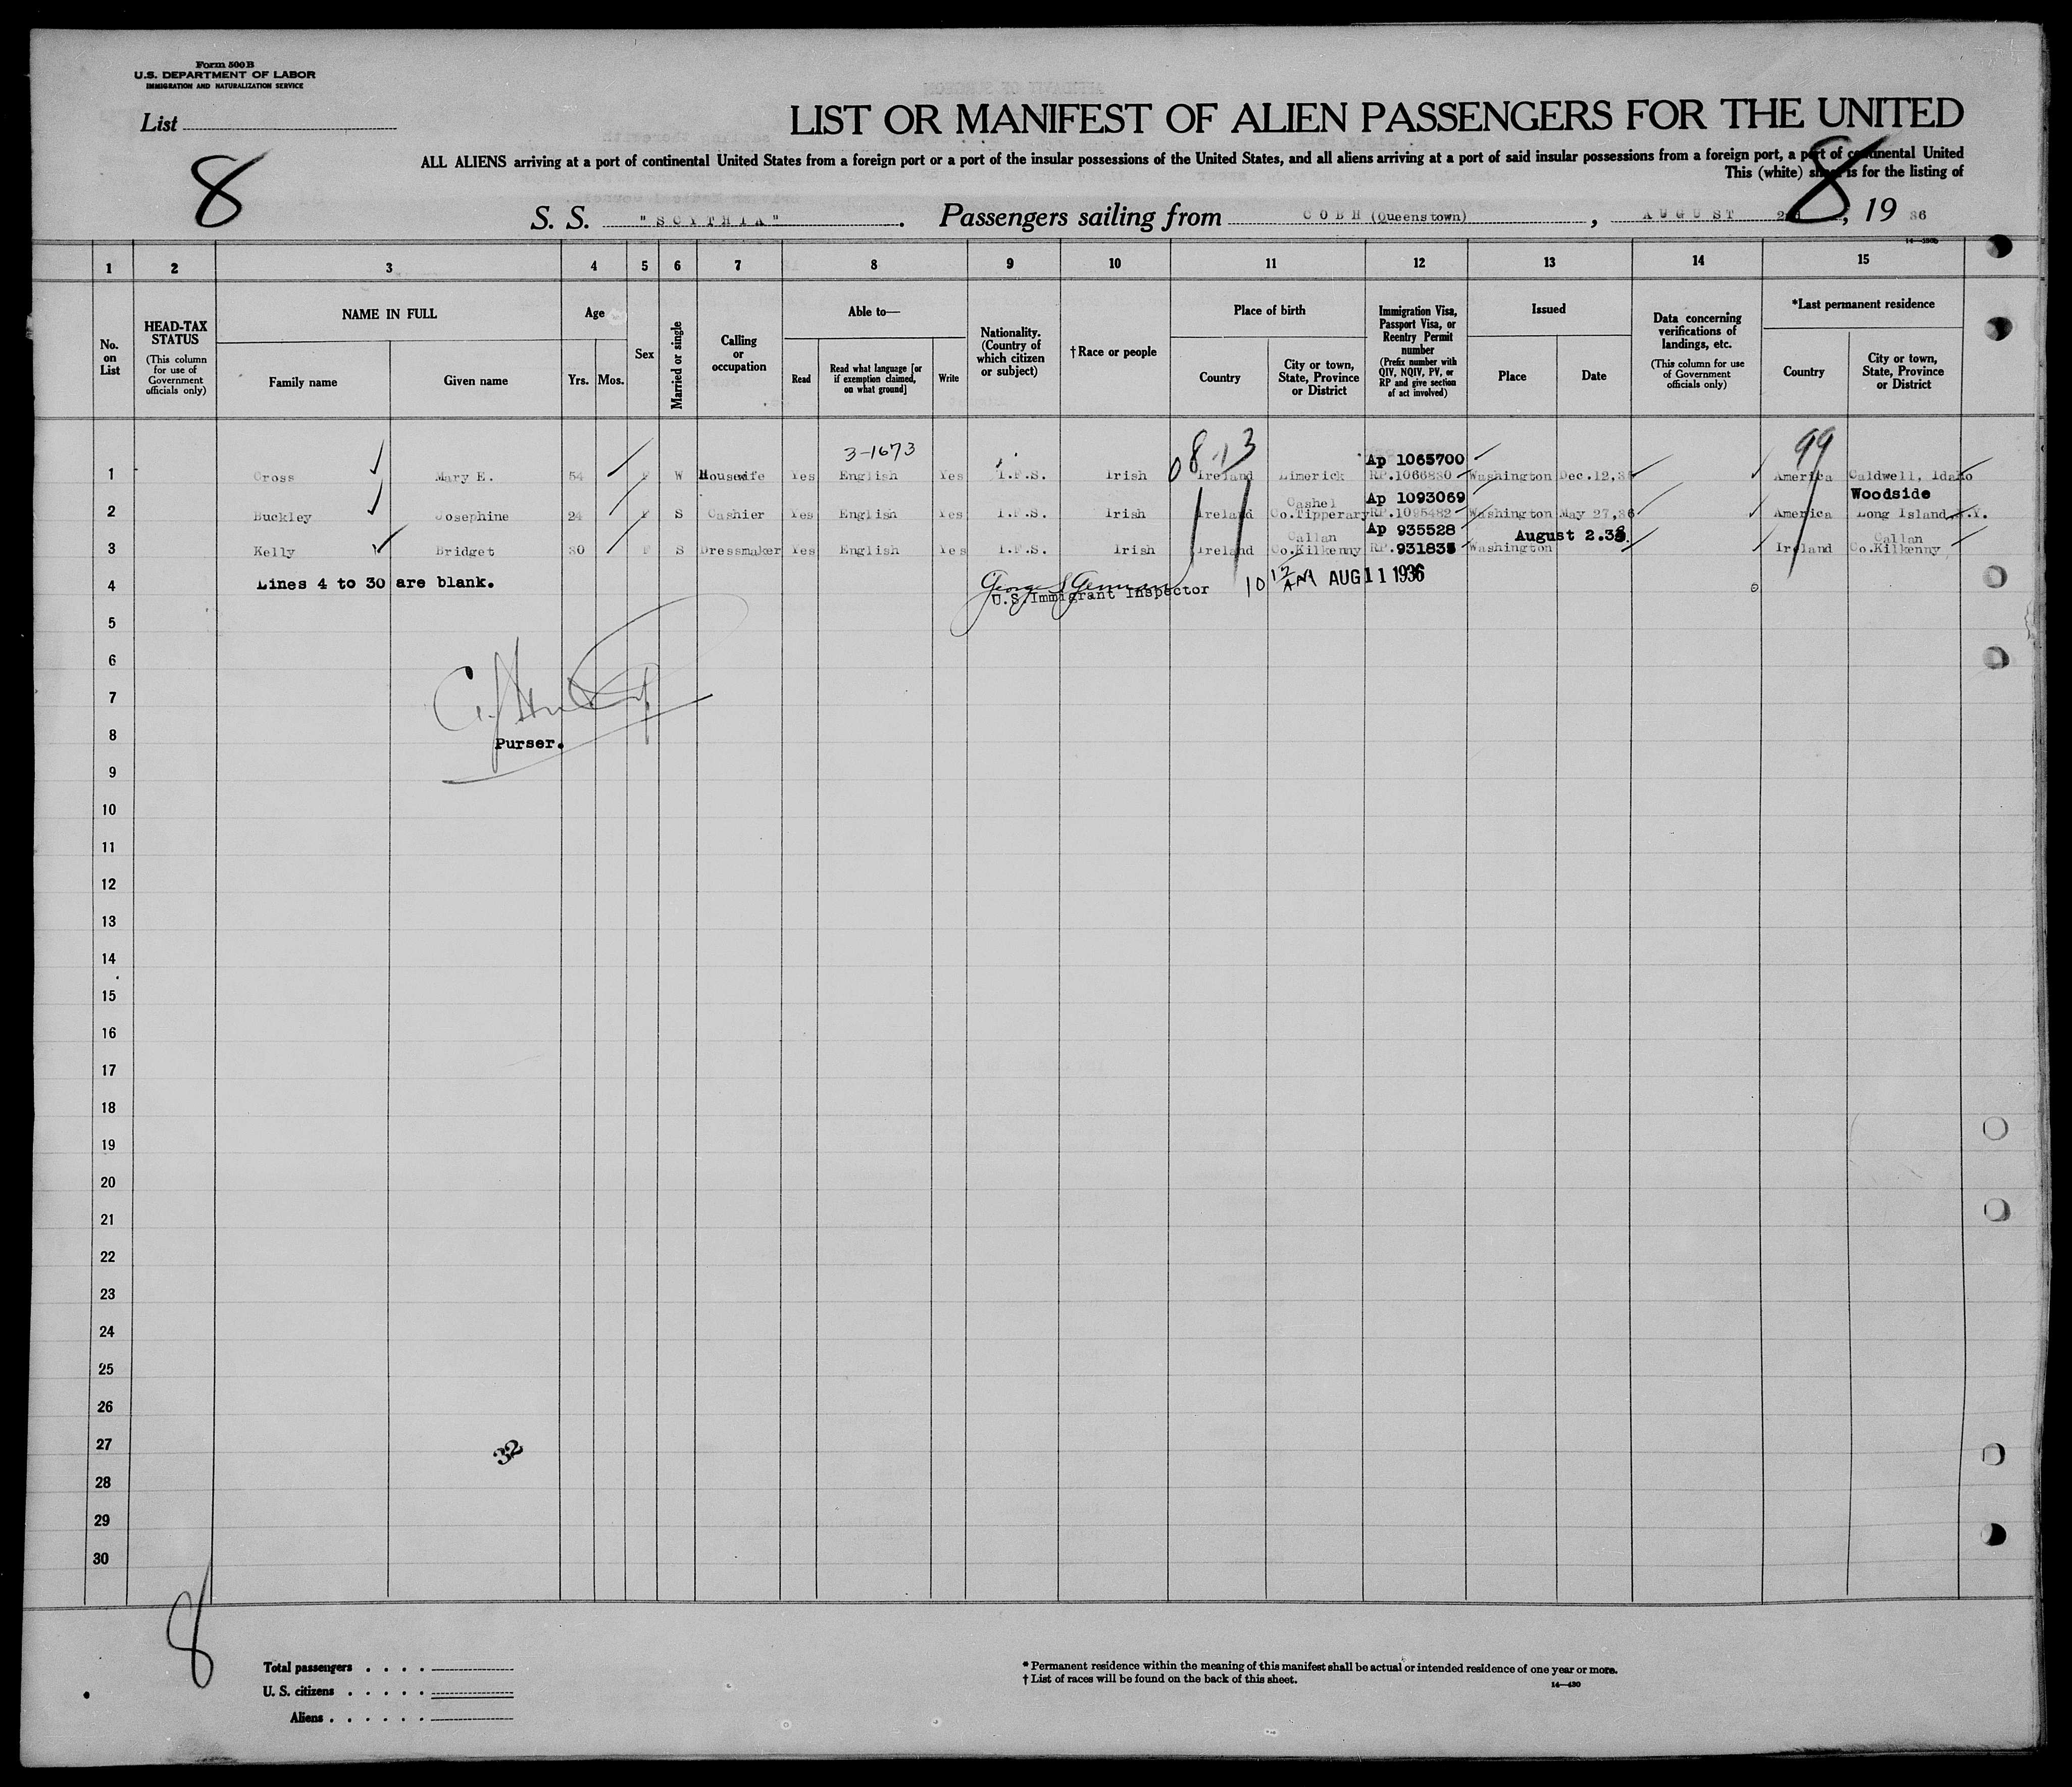 Form 500B
U.S. DEPARTMENT OF LABOR
IMMIGRATION AND NATURALIZATION SERVICE
List
8
LIST OR MANIFEST OF ALIEN PASSENGERS FOR THE UNITED
ALL ALIENS arriving at a port of continental United States from a foreign port or a port of the insular possessions of the United States, and all aliens arriving at a port of said insular possessions from a foreign port, a port of continental United
This (white) sheet is for the listing of
8
S. S. "SCYTHIA". Passengers sailing from COBH (Queenstown), AUGUST , 19 36
1 2 3 4 5 6 7 8 9 10 11 12 13 14 15
No. on List
HEAD-TAX STATUS (This column for use of Government officials only)
NAME IN FULL
Family name Given name
Age
Yrs. Mos.
Sex
Married or single
Calling or occupation
Able to—
Read
Read what language [or if exemption claimed, on what ground]
Write
Nationality. (Country of which citizen or subject)
†Race or people
Place of birth
Country
City or town, State, Province or District
Immigration Visa, Passport Visa, or Reentry Permit number (Prefix number with QIV, NQIV, PV, or RP and give section of act involved)
Issued
Place Date
Data concerning verifications of landings, etc. (This column for use of Government officials only)
*Last permanent residence
Country
City or town, State, Province or District
3-1673 Ap 1065700 99
1 Cross Mary E. 54 F W Housewife Yes English Yes I.F.S. Irish Ireland Limerick RP.1066830 Washington Dec.12,35 America Caldwell, Idaho
Cashel Ap 1093069 Woodside
2 Buckley Josephine 24 F S Cashier Yes English Yes I.F.S. Irish Ireland Co.Tipperary RP.1095482 Washington May 27,36 America Long Island,N.Y.
Callan Ap 935528 August 2.33. Callan
3 Kelly Bridget 30 F S Dressmaker Yes English Yes I.F.S. Irish Ireland Co.Kilkenny RP.931835 Washington Ireland Co.Kilkenny
4 Lines 4 to 30 are blank. 10 15 AM AUG 11 1936
U.S Immigrant Inspector
5
6
7
8
Purser.
9
10
11
12
13
14
15
16
17
18
19
20
21
22
23
24
25
26
27
32
28
29
30
8
Total passengers
U. S. citizens
Aliens
* Permanent residence within the meaning of this manifest shall be actual or intended residence of one year or more.
† List of races will be found on the back of this sheet.
14—430